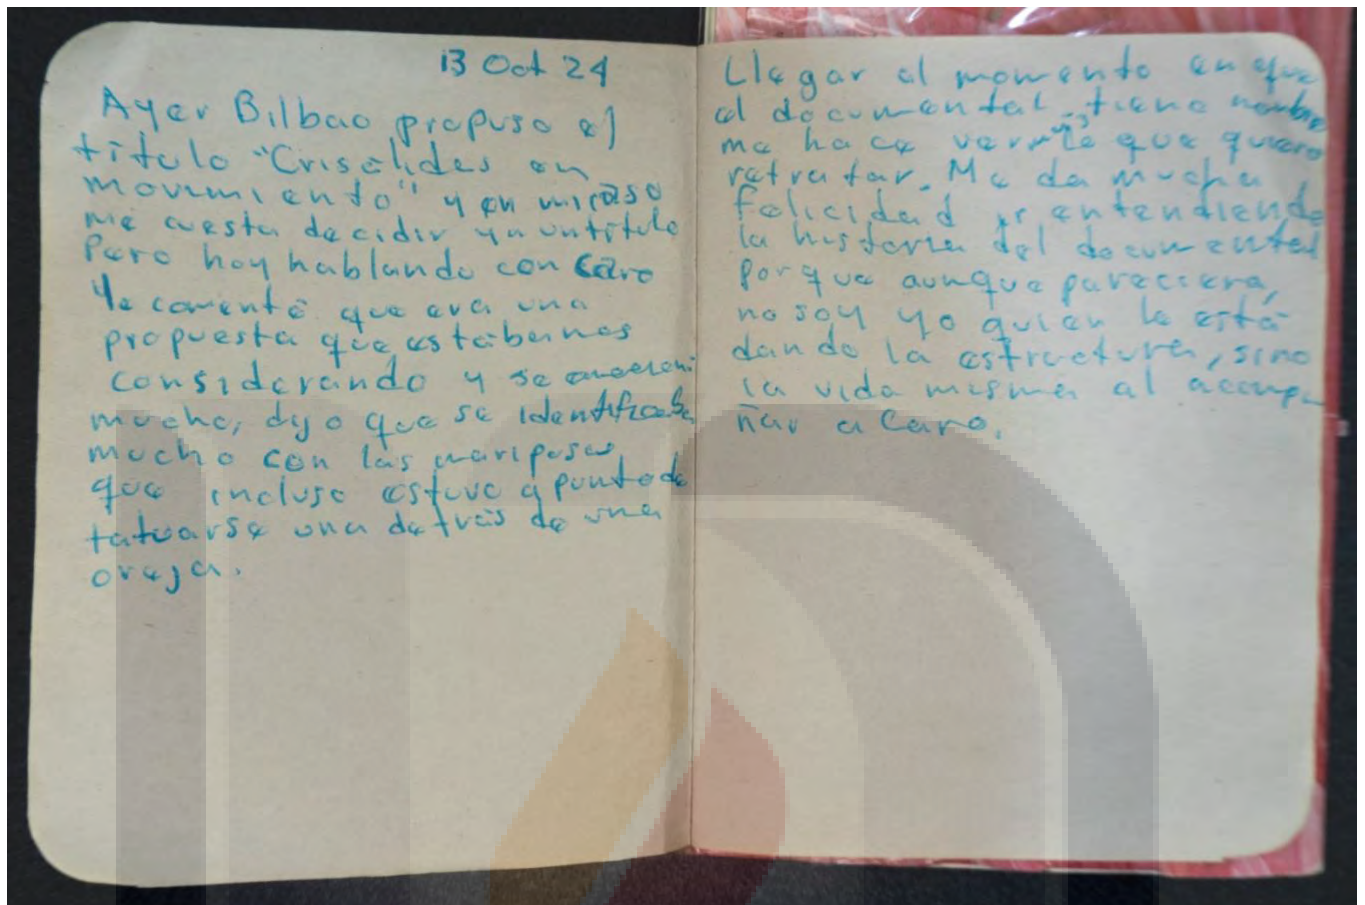 13 Oct 24
Ayer Bilbao propuso el
título "Crisálides en
movimiento" y en mi caso
me cuesta decidir ya un título
Pero hoy hablando con Caro
le comenté que era una
propuesta que estábamos
considerando y se
mucho, dijo que se identificaba
mucho con las mariposas
que incluso estuvo a punto de
tatuarse una detrás de una
oreja.
Llegar al momento en que
el documental tiene nombre
me hace ver más lo que quiero
retratar. Me da mucha
felicidad ir entendiendo
la historia del documental
porque aunque pareciera,
no soy yo quien le está
dando la estructura, sino
la vida misma al acompa
ñar a Caro.